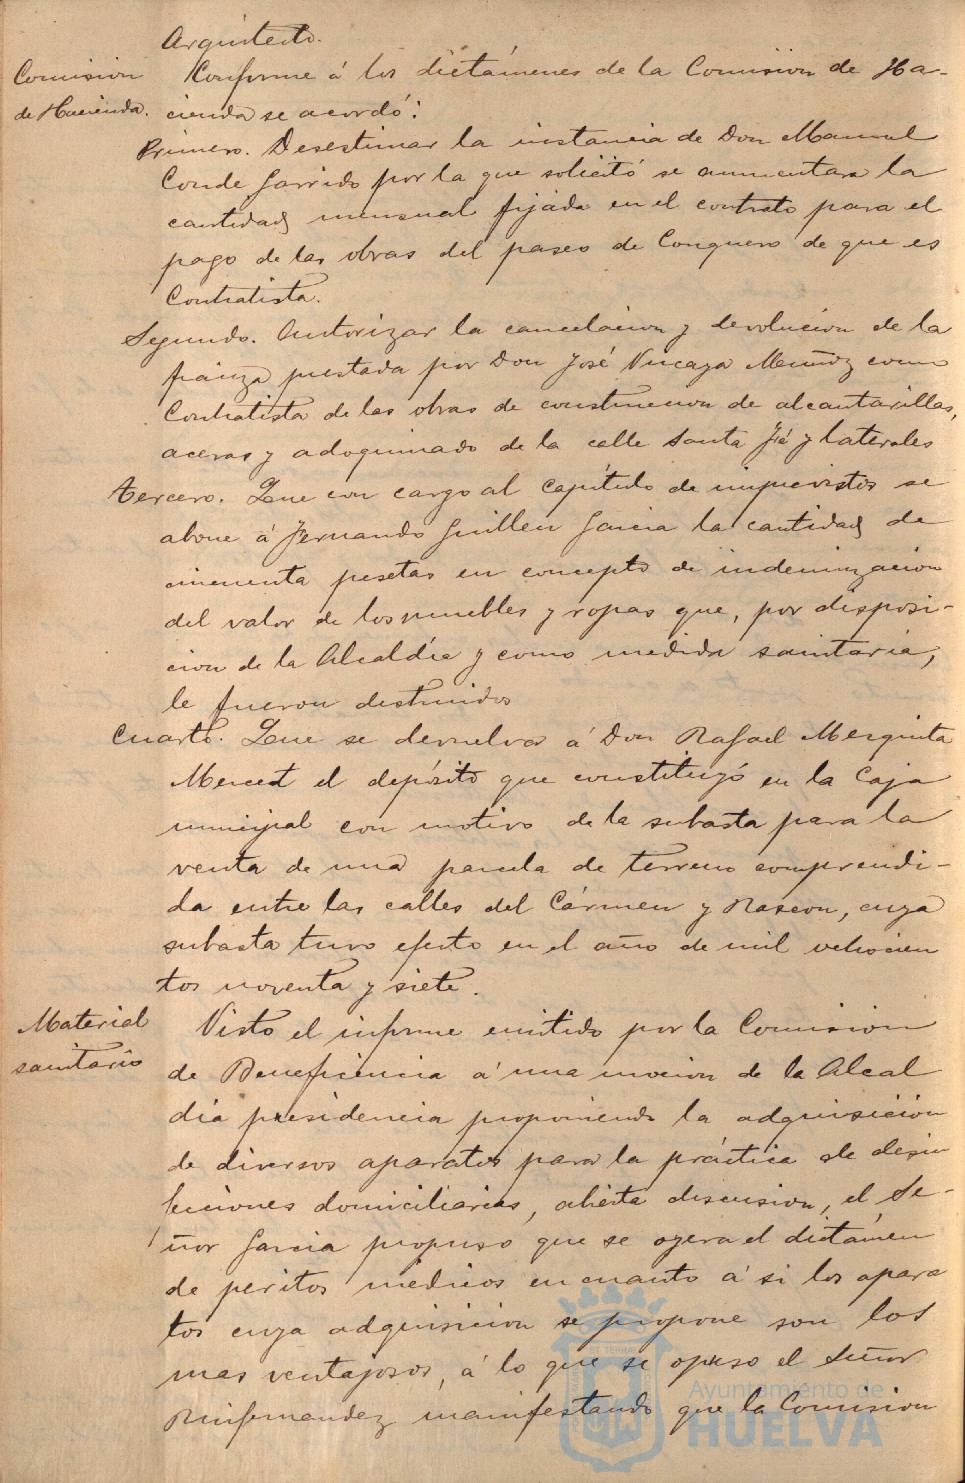 Arquitecto.
Comision
de Hacienda.
Conforme á los dictámenes de la Comision de Ha-
cienda se acordó:
Primero. Desestimar la instancia de Don Manuel
Conde Garrido por la que solicitó se aumentara la
cantidad mensual fijada en el contrato para el
pago de las obras del paseo de Conquero de que es
Contratista.
Segundo. Autorizar la cancelacion y devolucion de la
fianza prestada por Don José Vizcaya Muñoz como
Contratista de las obras de construccion de alcantarillas,
aceras y adoquinado de la calle Santa Fé y laterales
Tercero. Que con cargo al capítulo de imprevistos se
abone á Fernando Guillen Garcia la cantidad de
cincuenta pesetas en concepto de indemnizacion
del valor de los muebles y ropas que, por disposi-
cion de la Alcaldía y como medida sanitaria,
le fueron destruidos
Cuarto. Que se devuelva á Don Rafael Mezquita
el depósito que constituyó en la Caja
municipal con motivo de la subasta para la
venta de una parcela de terreno comprendi-
da entre las calles del Cármen y Rascon, cuya
subasta tuvo efecto en el año de mil ochocien
tos noventa y siete.
Material
sanitario
Visto el informe emitido por la Comision
de Beneficencia á una mocion de la Alcal
dia presidencia proponiendo la adquisicion
de diversos aparatos para la práctica de desin
fecciones domiciliarias, abierta discusion, el Se-
ñor Garcia propuso que se oyera el dictámen
de peritos médicos en cuanto á si los apara
tos cuya adquisicion se propone son los
mas ventajosos, á lo que se opuso el Señor
Ruifernandez manifestando que la Comision
Ayuntamiento de
HUELVA